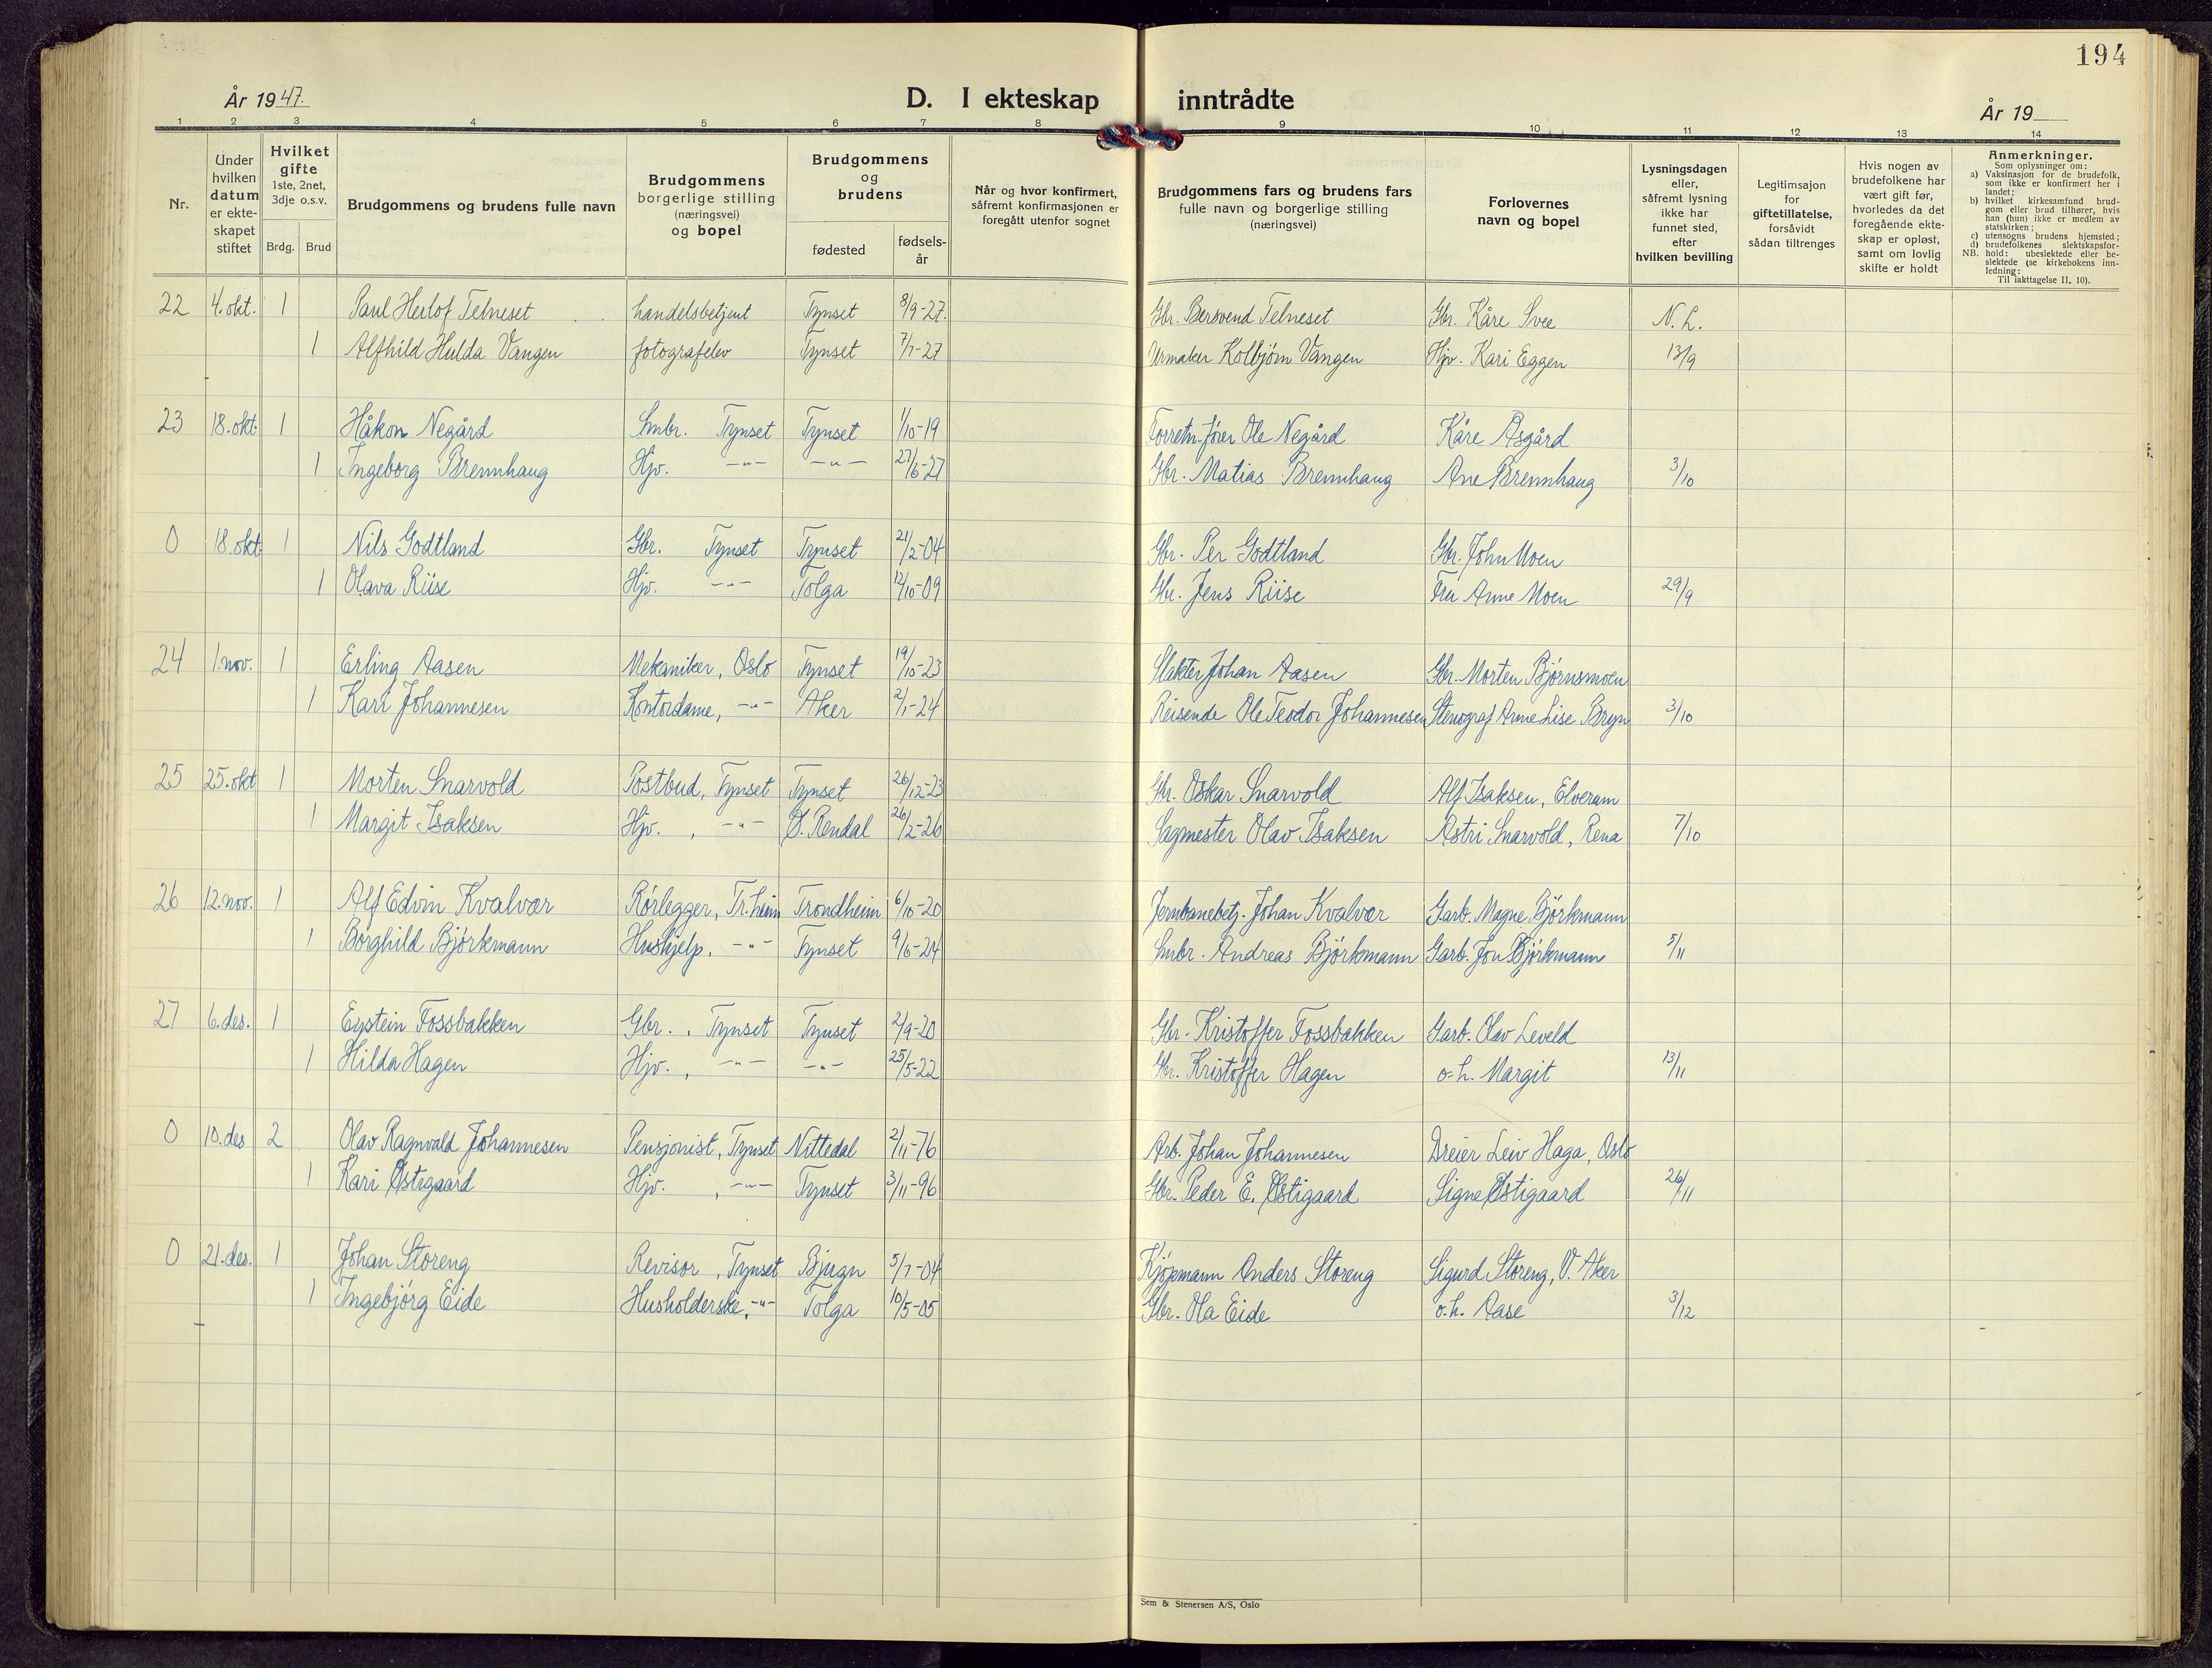 194
År 1947.
D. I ekteskap inntrådte
År 19
1 2 3 4 5 6 7 8 9 10 11 12 13 14
Nr.
Under hvilken datum er ekte-skapet stiftet
Hvilket gifte 1ste, 2net, 3dje o.s.v.
Brdg. Brud
Brudgommens og brudens fulle navn
Brudgommens borgerlige stilling (næringsvei) og bopel
Brudgommens og brudens
fødested
fødsels-år
Når og hvor konfirmert, såfremt konfirmasjonen er foregått utenfor sognet
Brudgommens fars og brudens fars fulle navn og borgerlige stilling (næringsvei)
Forlovernes navn og bopel
Lysningsdagen eller, såfremt lysning ikke har funnet sted, efter hvilken bevilling
Legitimsajon for giftetillatelse, forsåvidt sådan tiltrenges
Hvis nogen av brudefolkene har vært gift før, hvorledes da det foregående ekte-skap er opløst, samt om lovlig skifte er holdt
Anmerkninger.
Som oplysninger om:
a) Vaksinasjon for de brudefolk, som ikke er konfirmert her i landet;
b) hvilket kirkesamfund brud-gom eller brud tilhører, hvis han (hun) ikke er medlem av statskirken;
c) utensogns brudens hjemsted;
d) brudefolkenes slektskapsfor-hold: ubeslektede eller be-slektede (se kirkebokens inn-ledning:
NB.
Til iakttagelse II, 10).
22 4. okt. 1 Paul Herlof Telneset handelsbetjent Tynset 8/9-27. Gbr. Bersvend Telneset Gbr. Kåre Svee N. L.
1 Alfhild Hulda Vangen fotografelev Tynset 7/7-27 Urmaker Kolbjørn Vangen Hjv. Kari Eggen 13/9
23 18. okt. 1 Håkon Negård Smbr. Tynset Tynset 1/10-19 Forretn.fører Ole Negård Kåre Åsgård
1 Ingeborg Brennhaug Hjv. -"- -"- 27/6-27 Gbr. Matias Brennhaug Ane Brennhaug 3/10
0 18. okt 1 Nils Godtland Gbr. Tynset Tynset 21/2-04 Gbr. Per Godtland Gbr. John Moen
1 Olava Riise Hjv. -"- Tolga 12/10-09 Gbr. Jens Riise Fru Anne Moen 29/9
24 1. nov. 1 Erling Aasen Mekaniker, Oslo Tynset 19/10-23 Slakter Johan Aasen Gbr. Morten Bjørnsmoen
1 Kari Johannesen Kontordame, -"- Aker 2/1-24 Reisende Ole Teodor Johannesen Stenograf Anne Lise Bryn 3/10
25 25. okt 1 Morten Snarvold Postbud, Tynset Tynset 26/12-23 Gbr. Oskar Snarvold Alf Isaksen, Elverum
1 Margit Isaksen Hjv. , -"- Ø. Rendal 26/2-26 Sagmester Olav Isaksen Astri Snarvold, Rena 7/10
26 12. nov. 1 Alf Edvin Kvalvær Rørlegger, Tr.heim Trondheim 6/10-20 Jernbanebetj. Johan Kvalvær Garb. Magne Björkmann
1 Borghild Björkmann Hushjelp, -"- Tynset 9/6-24 Smbr. Andreas Björkmann Garb. Jon Björkmann 5/11
27 6. des. 1 Eystein Fossbakken Gbr. , Tynset Tynset 2/9-20 Gbr. Kristoffer Fossbakken Garb. Olav Leveld
1 Hilda Hagen Hjv. , -"- -"- 25/5-22 Gbr. Kristoffer Hagen o.h. Margit 13/11
0 10. des 2 Olav Ragnvald Johannesen Pensjonist, Tynset Nittedal 2/11-76 Arb. Johan Johannesen Dreier Leiv Haga, Oslo
1 Kari Østigaard Hjv. , -"- Tynset 3/11-96 Gbr. Peder E. Østigaard Signe Østigaard 26/11
0 21. des. 1 Johan Storeng Revisor, Tynset Bjugn 5/7-04 Kjøpmann Anders Storeng Sigurd Storeng, V. Aker
1 Ingebjörg Eide Husholderske, -"- Tolga 10/5-05 Gbr. Ola Eide o.h. Aase 3/12
Sem & Stenersen A/S, Oslo